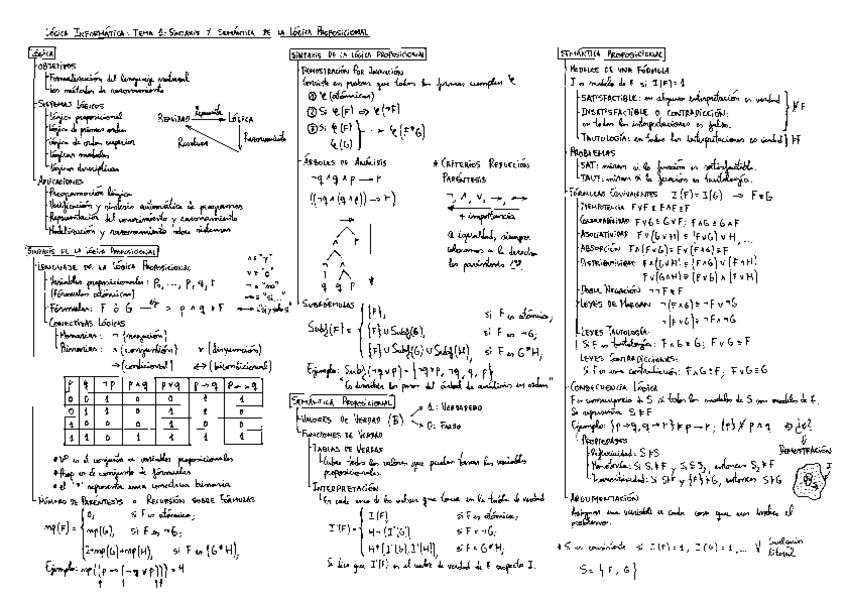 LÓGICA INFORMÁTICA: TEMA 1: SINTAXIS Y SEMÁNTICA DE LA LÓGICA PROPOSICIONAL
LÓGICA
OBJETIVOS
Formalización del lenguaje natural
Los métodos de razonamiento
SISTEMAS LÓGICOS
Lógica proposicional
Lógica de primer orden
Lógica de orden superior
Lógicas modales
Lógicas descriptivas
REALIDAD → LÓGICA
Representa
Razonamiento
Resultado
APLICACIONES
Programación lógica
Verificación y síntesis automática de programas
Representación del conocimiento y razonamiento
Modelización y razonamiento sobre sistemas
SINTAXIS DE LA LÓGICA PROPOSICIONAL
LENGUAJE DE LA LÓGICA PROPOSICIONAL
Variables proposicionales: P₀, ..., p, q, r
(Fórmulas atómicas)
Fórmulas: F ó G
∧ = "y"
∨ = "o"
¬ = "no"
CONECTIVAS LÓGICAS
Monarias: ¬ (negación)
Binarias: ∧ (conjunción) ∨ (disyunción)
→ (condicional) ↔ (bicondicional)
p q ¬p p∧q p∨q p→q p↔q
0 0 1 0 0 1 1
0 1 1 0 1 1 0
1 0 0 0 1 0 0
1 1 0 1 1 1 1
* VP es el conjunto de variables proposicionales
* Prop es el conjunto de fórmulas
* el "*" representa una conectiva binaria
NÚMERO DE PARÉNTESIS o RECURSIÓN SOBRE FÓRMULAS
np(F) =
0, si F es atómica;
np(G), si F es ¬G;
2+np(G)+np(H), si F es (G*H);
Ejemplo: np((p→(¬q∨p))) = 4
SINTAXIS DE LA LÓGICA PROPOSICIONAL
DEMOSTRACIÓN POR INDUCCIÓN
Consiste en probar que todas las formas cumplen φ
① φ (atómicas)
② Si φ(F) ⇒ φ(¬F)
③ Si φ(F)
φ(G)
φ(F*G)
ÁRBOLES DE ANÁLISIS
¬q ∧ q ∧ p → r
((¬q ∧ (q ∧ p)) → r)
* CRITERIOS REDUCCIÓN
PARÉNTESIS
¬, ∧, ∨, →, ↔
+ importancia
A igualdad, siempre
colocamos a la derecha
los paréntesis
SUBFÓRMULAS
Subf(F) =
{F}, si F es atómica;
{F} ∪ Subf(G), si F es ¬G;
{F} ∪ Subf(G) ∪ Subf(H), si F es G*H;
SEMÁNTICA PROPOSICIONAL
VALORES DE VERDAD (B)
1: VERDADERO
0: FALSO
FUNCIONES DE VERDAD
TABLAS DE VERDAD
Cubre todos los valores que puedan tomar las variables
proposicionales.
INTERPRETACIÓN
Es cada una de los valores que toman en la tabla de verdad
I'(F) =
I(F) si F es atómica;
H¬(I'(G)) si F es ¬G;
H*(I'(G), I'(H)), si F es G*H;
Se dice que I'(F) es el valor de verdad de F respecto I.
SEMÁNTICA PROPOSICIONAL
MODELOS DE UNA FÓRMULA
I es modelo de F si I(F)=1
SATISFACTIBLE: en alguna interpretación es verdad
INSATISFACTIBLE O CONTRADICCIÓN:
en todas las interpretaciones es falso.
TAUTOLOGÍA: en todas las interpretaciones es verdad ⊨F
PROBLEMAS
SAT: miramos si la función es satisfactible.
TAUT: miramos si la función es tautología.
FÓRMULAS EQUIVALENTES I(F) = I(G) → F≡G
IDEMPOTENCIA F∨F≡F∧F≡F
CONMUTATIVIDAD F∨G≡G∨F; F∧G≡G∧F
ASOCIATIVIDAD F∨(G∨H)≡(F∨G)∨H, ...
ABSORCIÓN F∧(F∨G)≡F∨(F∧G)≡F
DISTRIBUTIVIDAD F∧(G∨H)≡(F∧G)∨(F∧H)
F∨(G∧H)≡(F∨G)∧(F∨H)
DOBLE NEGACIÓN ¬¬F≡F
LEYES DE MORGAN ¬(F∧G)≡¬F∨¬G
¬(F∨G)≡¬F∧¬G
LEYES TAUTOLOGÍA:
Si F es tautología: F∧G≡G; F∨G≡F
LEYES CONTRADICCIONES:
Si F es una contradicción: F∧G≡F; F∨G≡G
CONSECUENCIA LÓGICA
F es consecuencia de S si todos los modelos de S son modelos de F.
Se representa S⊨F
Ejemplo: {p→q, q→r} ⊨ p→r; {p} ⊭ p∧q
DEMOSTRACIÓN
PROPIEDADES
Reflexividad: S⊨S
Monotonía: Si S₁⊨F y S₁⊆S₂ entonces S₂⊨F
Transitividad: Si S⊨F y {F}⊨G, entonces S⊨G
ARGUMENTACIÓN
Asignar una variable a cada cosa que nos indica el
problema.
* S es consistente si I(F)=1, I(G)=1, ...
S = {F, G}